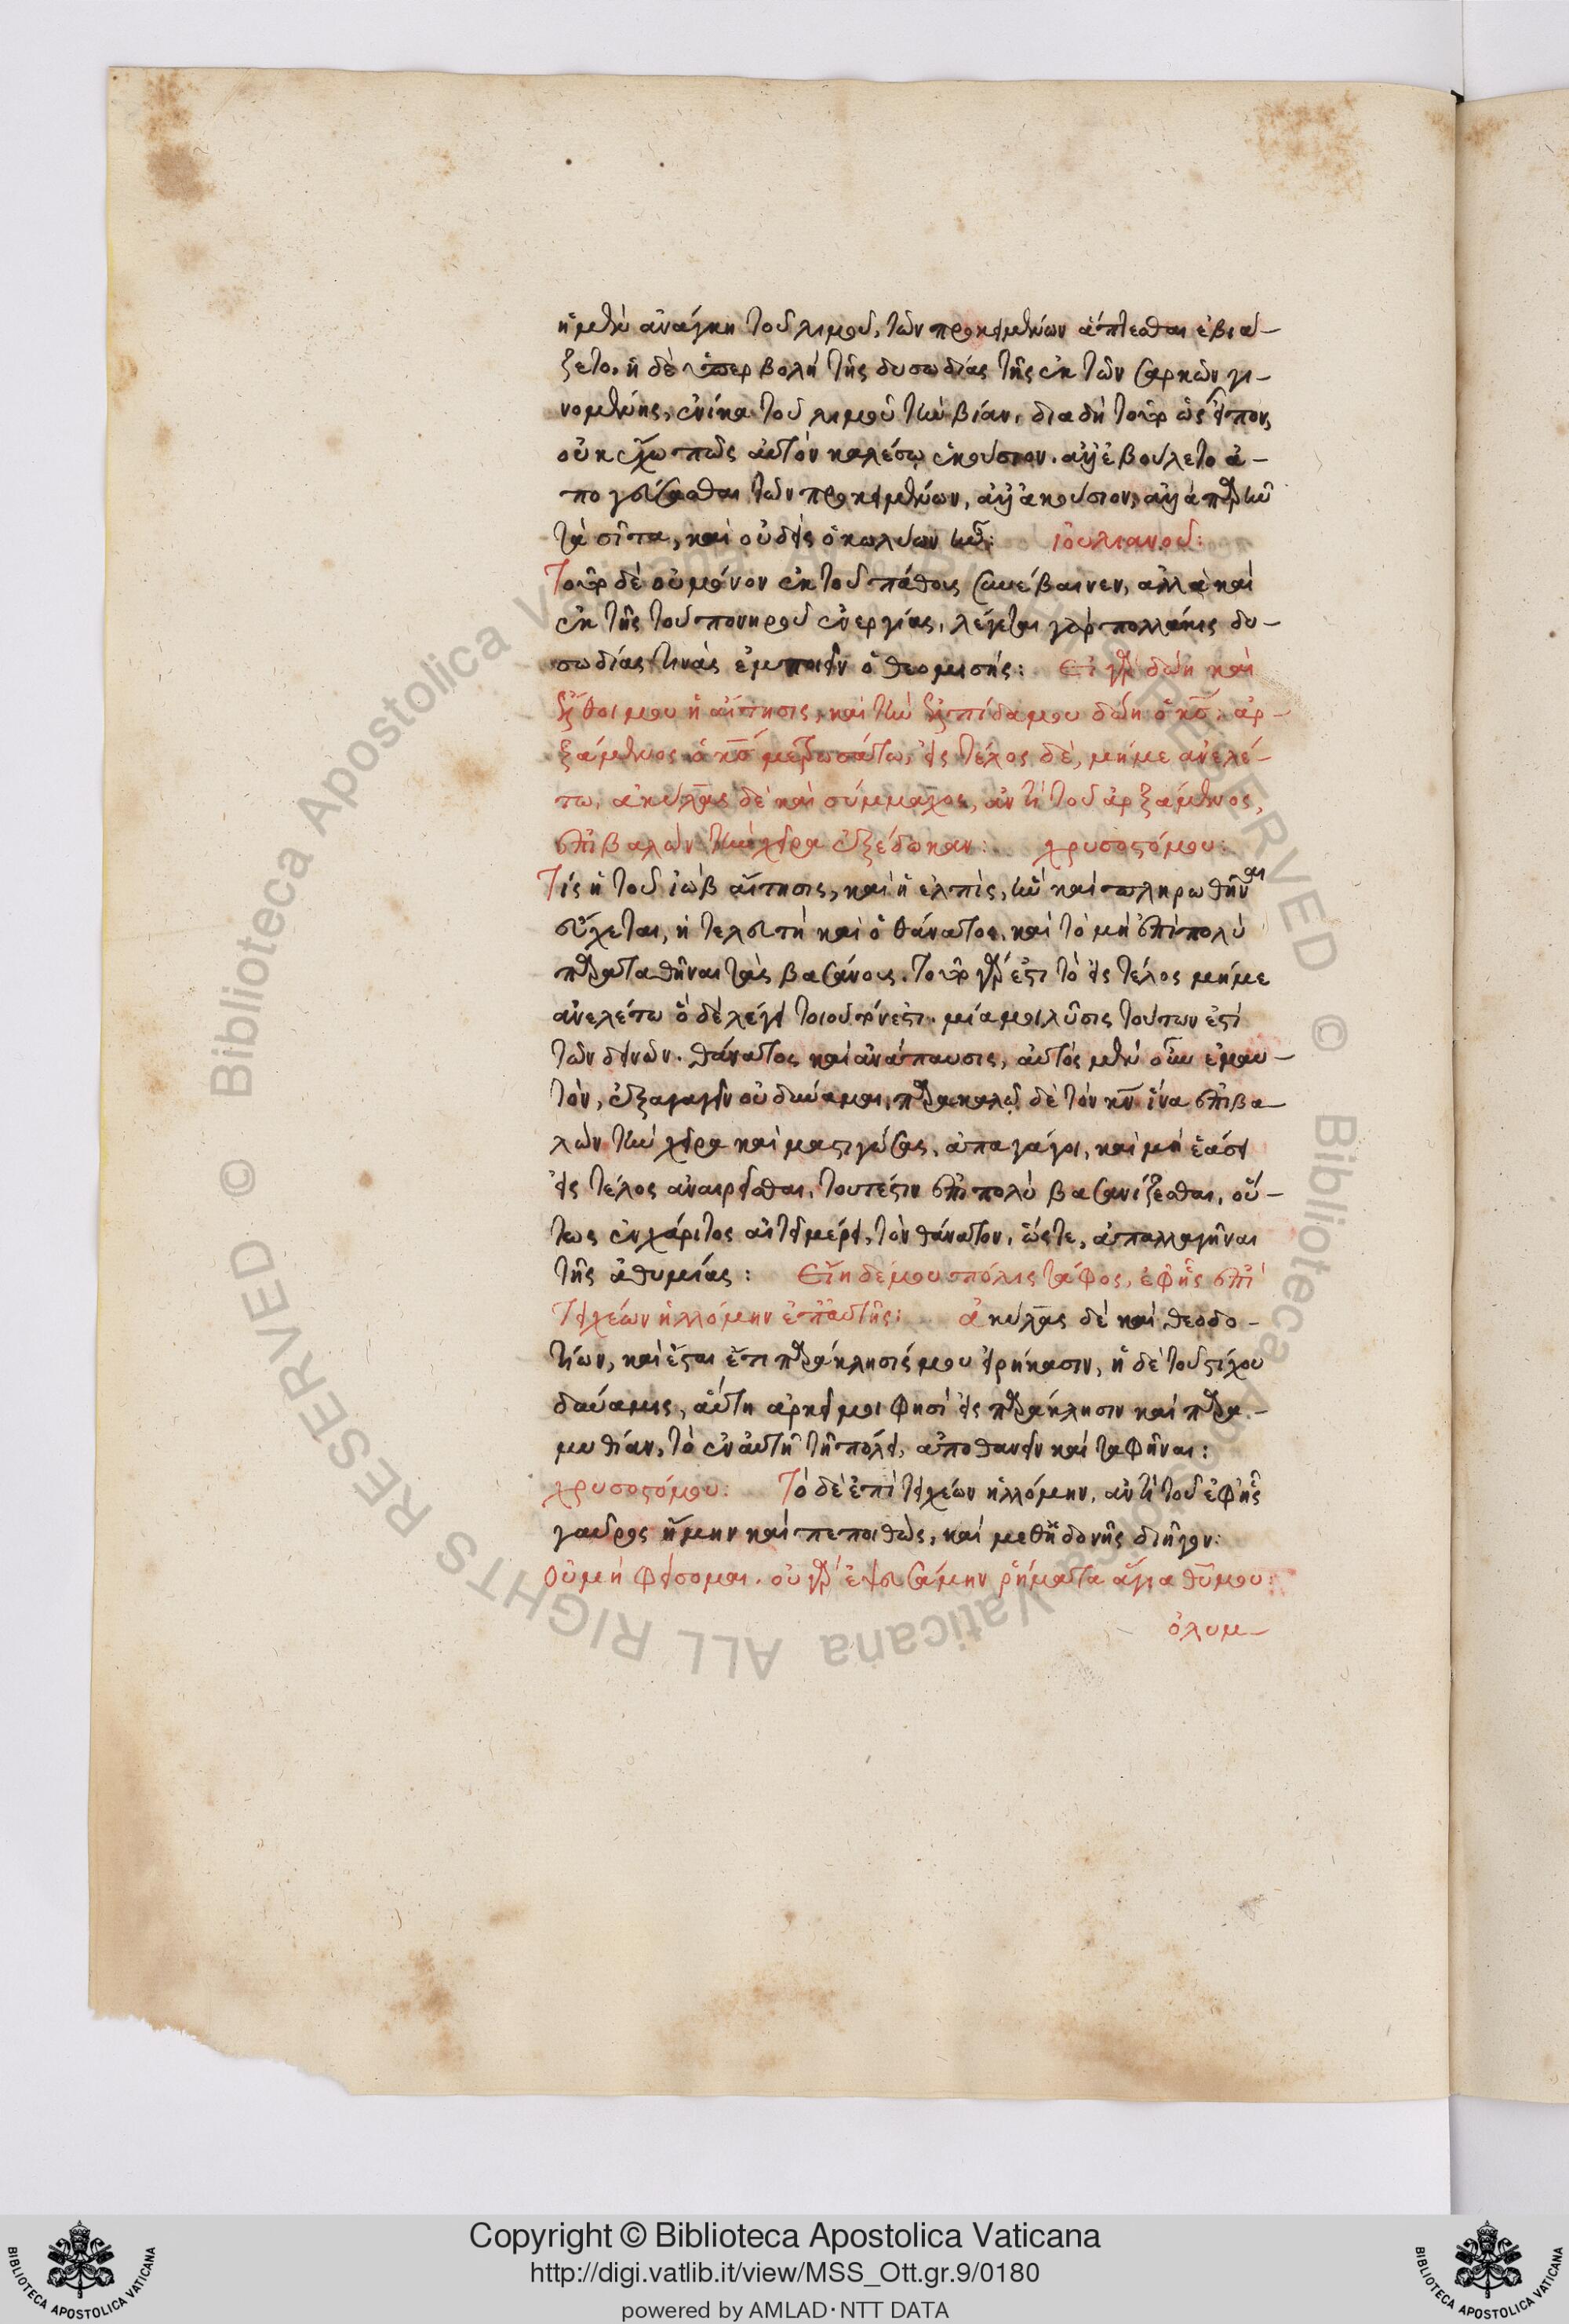 ἡ μὲν ἀνάγκη τοῦ λιμοῦ, τῶν προκειμένων ἅπτεσθαι ἐβιά-
ζετο. ἡ δὲ ὑπερβολὴ τῆς δυσωδίας τῆς ἐκ τῶν σαρκῶν γι-
νομένης, ἐνίκα τοῦ λιμοῦ τὴν βίαν. διαδὴ τοῦτο ὡς εἶπον,
οὐκ ἔχω πῶς αὐτὸν καλέσω ἑκούσιον. ἀλλ' ἐβούλετο ἀ-
πογεύσασθαι τῶν προκειμένων, ἀλλ' ἀκούσιον, ἀλλὰ παρῆν
τὰ σῖτα, καὶ οὐδεὶς ὁ κωλύων ἦν: ἰουλιανοῦ:
Τοῦτο δὲ οὐ μόνον ἐκ τοῦ πάθους συνέβαινεν, ἀλλὰ καὶ
ἐκ τῆς τοῦ πονηροῦ ἐνεργείας. λέγεται γὰρ πολλάκις δυ-
σωδίας τινὰς ἐμποιεῖν ὁ θεομισής: Εἰ γὰρ δώη καὶ
ἔλθοι μου ἡ αἴτησις, καὶ τὴν ἐλπίδα μου δώη ὁ κς̄. ἀρ-
ξάμενος ὁ κς̄ με τρωσάτω, εἰς τέλος δὲ, μή με ἀνελέ-
τω. ἀκύλας δὲ καὶ σύμμαχος, ἀντὶ τοῦ ἀρξάμενος,
ἐπιβαλὼν τὴν χεῖρα ἐξέδωκαν: χρυσοστόμου:
Τίς ἡ τοῦ ἰὼβ αἴτησις, καὶ ἡ ἐλπὶς, ἣν καὶ πληρωθῆναι
εὔχεται, ἡ τελευτὴ καὶ ὁ θάνατος. καὶ τὸ μὴ ἐπὶ πολὺ
παραταθῆναι τὰς βασάνους. τοῦτο γάρ ἐστι τὸ εἰς τέλος μή με
ἀνελέτω ὃ δὲ λέγει τοιοῦτόν ἐστι. μία μοι λῦσις τούτων ἐστὶ
τῶν δεινῶν. θάνατος καὶ ἀνάπαυσις, αὐτὸς μὲν οὖν ἐμαυ-
τὸν, ἐξαγαγεῖν οὐ δύναμαι, παρακαλῶ δὲ τὸν κν̄ ἵνα ἐπιβα-
λὼν τὴν χεῖρα καὶ μαστιγώσας, ἀπαγάγοι, καὶ μὴ ἐάσει
εἰς τέλος ἀναιρεῖσθαι, τουτέστιν ἐπὶ πολὺ βασανίζεσθαι, οὕ-
τως ἐν χάριτος αἰτεῖ μέρει, τὸν θάνατον, ὥστε, ἀπαλλαγῆναι
τῆς ἀθυμίας: Εἴη δέ μου πόλις τάφος, ἐφ' ἧς ἐπὶ
τειχέων ἡλλόμην ἐπ' αὐτῆς: ἀκύλας δὲ καὶ θεοδο-
τίων, καὶ ἔσται ἔτι παράκλησίς μου εἰρήκασιν, ἡ δὲ τοῦ στίχου
δύναμις, αὕτη ἀρκεῖ μοι φησὶ εἰς παράκλησιν καὶ παρα-
μυθίαν, τὸ ἐν αὐτῇ τῇ πόλει, ἀποθανεῖν καὶ ταφῆναι:
χρυσοστόμου: Τὸ δὲ ἐπὶ τειχέων ἡλλόμην, ἀντὶ τοῦ ἐφ' ἧς
γαῦρος ἤμην καὶ πεποιθὼς, καὶ μεθ' ἡδονῆς διῆγον:
Οὐ μὴ φείσομαι. οὐ γὰρ ἐψευσάμην ῥήματα ἅγια θῡ μου:
ὀλυμ-
Copyright © Biblioteca Apostolica Vaticana
http://digi.vatlib.it/view/MSS_Ott.gr.9/0180
powered by AMLAD·NTT DATA